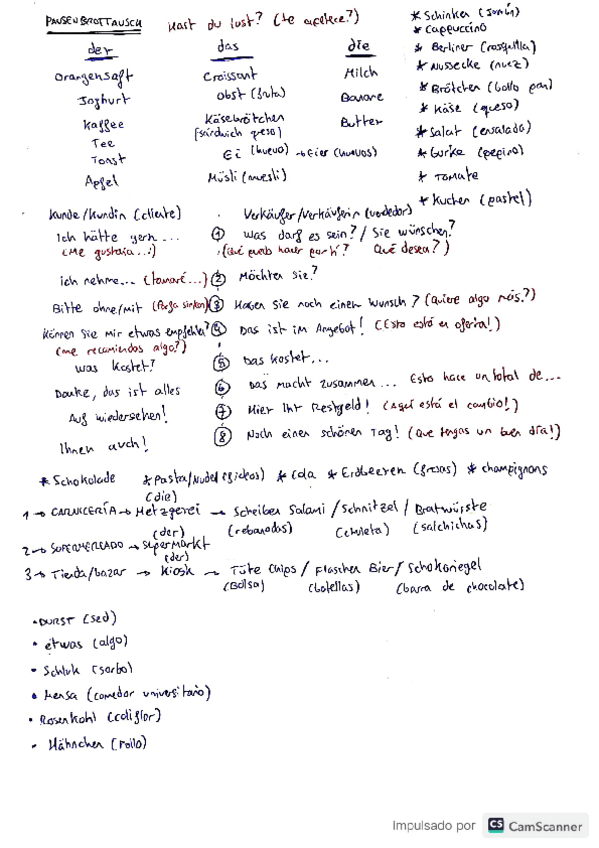 PAUSENBROTTAUSCH Hast du lust? (te apetece?)
der
Orangensaft
Joghurt
Kaffee
Tee
Toast
Apfel
das
Croissant
Obst (fruta)
Käsebrötchen
(sándwich queso)
Ei (huevo) → Eier (huevos)
Müsli (muesli)
die
Milch
Banane
Butter
* Schinken (jamón)
* Cappuccino
* Berliner (rosquilla)
* Nussecke (nuez)
* Brötchen (bollo pan)
* Käse (queso)
* Salat (ensalada)
* Gurke (pepino)
* Tomate
* Kuchen (pastel)
Kunde/Kundin (cliente)
Ich hätte gern ...
(Me gustaría ...)
ich nehme... (tomaré...)
Bitte ohne/mit
können Sie mir etwas empfehlen?
(me recomiendas algo?)
was kostet?
Danke, das ist alles
Auf wiedersehen!
Ihnen auch!
Verkäufer/Verkäuferin (vendedor)
① Was darf es sein? / Sie wünschen?
(Qué puedo hacer por ti? Qué desea?)
② Möchten Sie?
③ Haben Sie noch einen Wunsch? (Quiere algo más?)
④ Das ist im Angebot! (Esto está en oferta!)
⑤ Das kostet...
⑥ Das macht zusammen ... Esto hace un total de...
⑦ Hier Ihr Restgeld! (Aquí está el cambio!)
⑧ Noch einen schönen Tag! (Que tengas un buen día!)
* Schokolade * Pasta/Nudel * Cola * Erdbeeren (fresas) * champignons
(die)
1 → CARNICERÍA → Metzgerei → Scheiben Salami / Schnitzel / Bratwürste
(rebanadas) (chuleta) (salchichas)
(der)
2 → SUPERMERCADO → Supermarkt
(der)
3 → Tienda/bazar → Kiosk → Tüte Chips / Flaschen Bier / Schokoriegel
(Bolsa) (botellas) (barra de chocolate)
• DURST (sed)
• etwas (algo)
• Schluk (sorbo)
• Mensa (comedor universitario)
• Rosenkohl (coliflor)
• Hähnchen (Pollo)
Impulsado por CS CamScanner